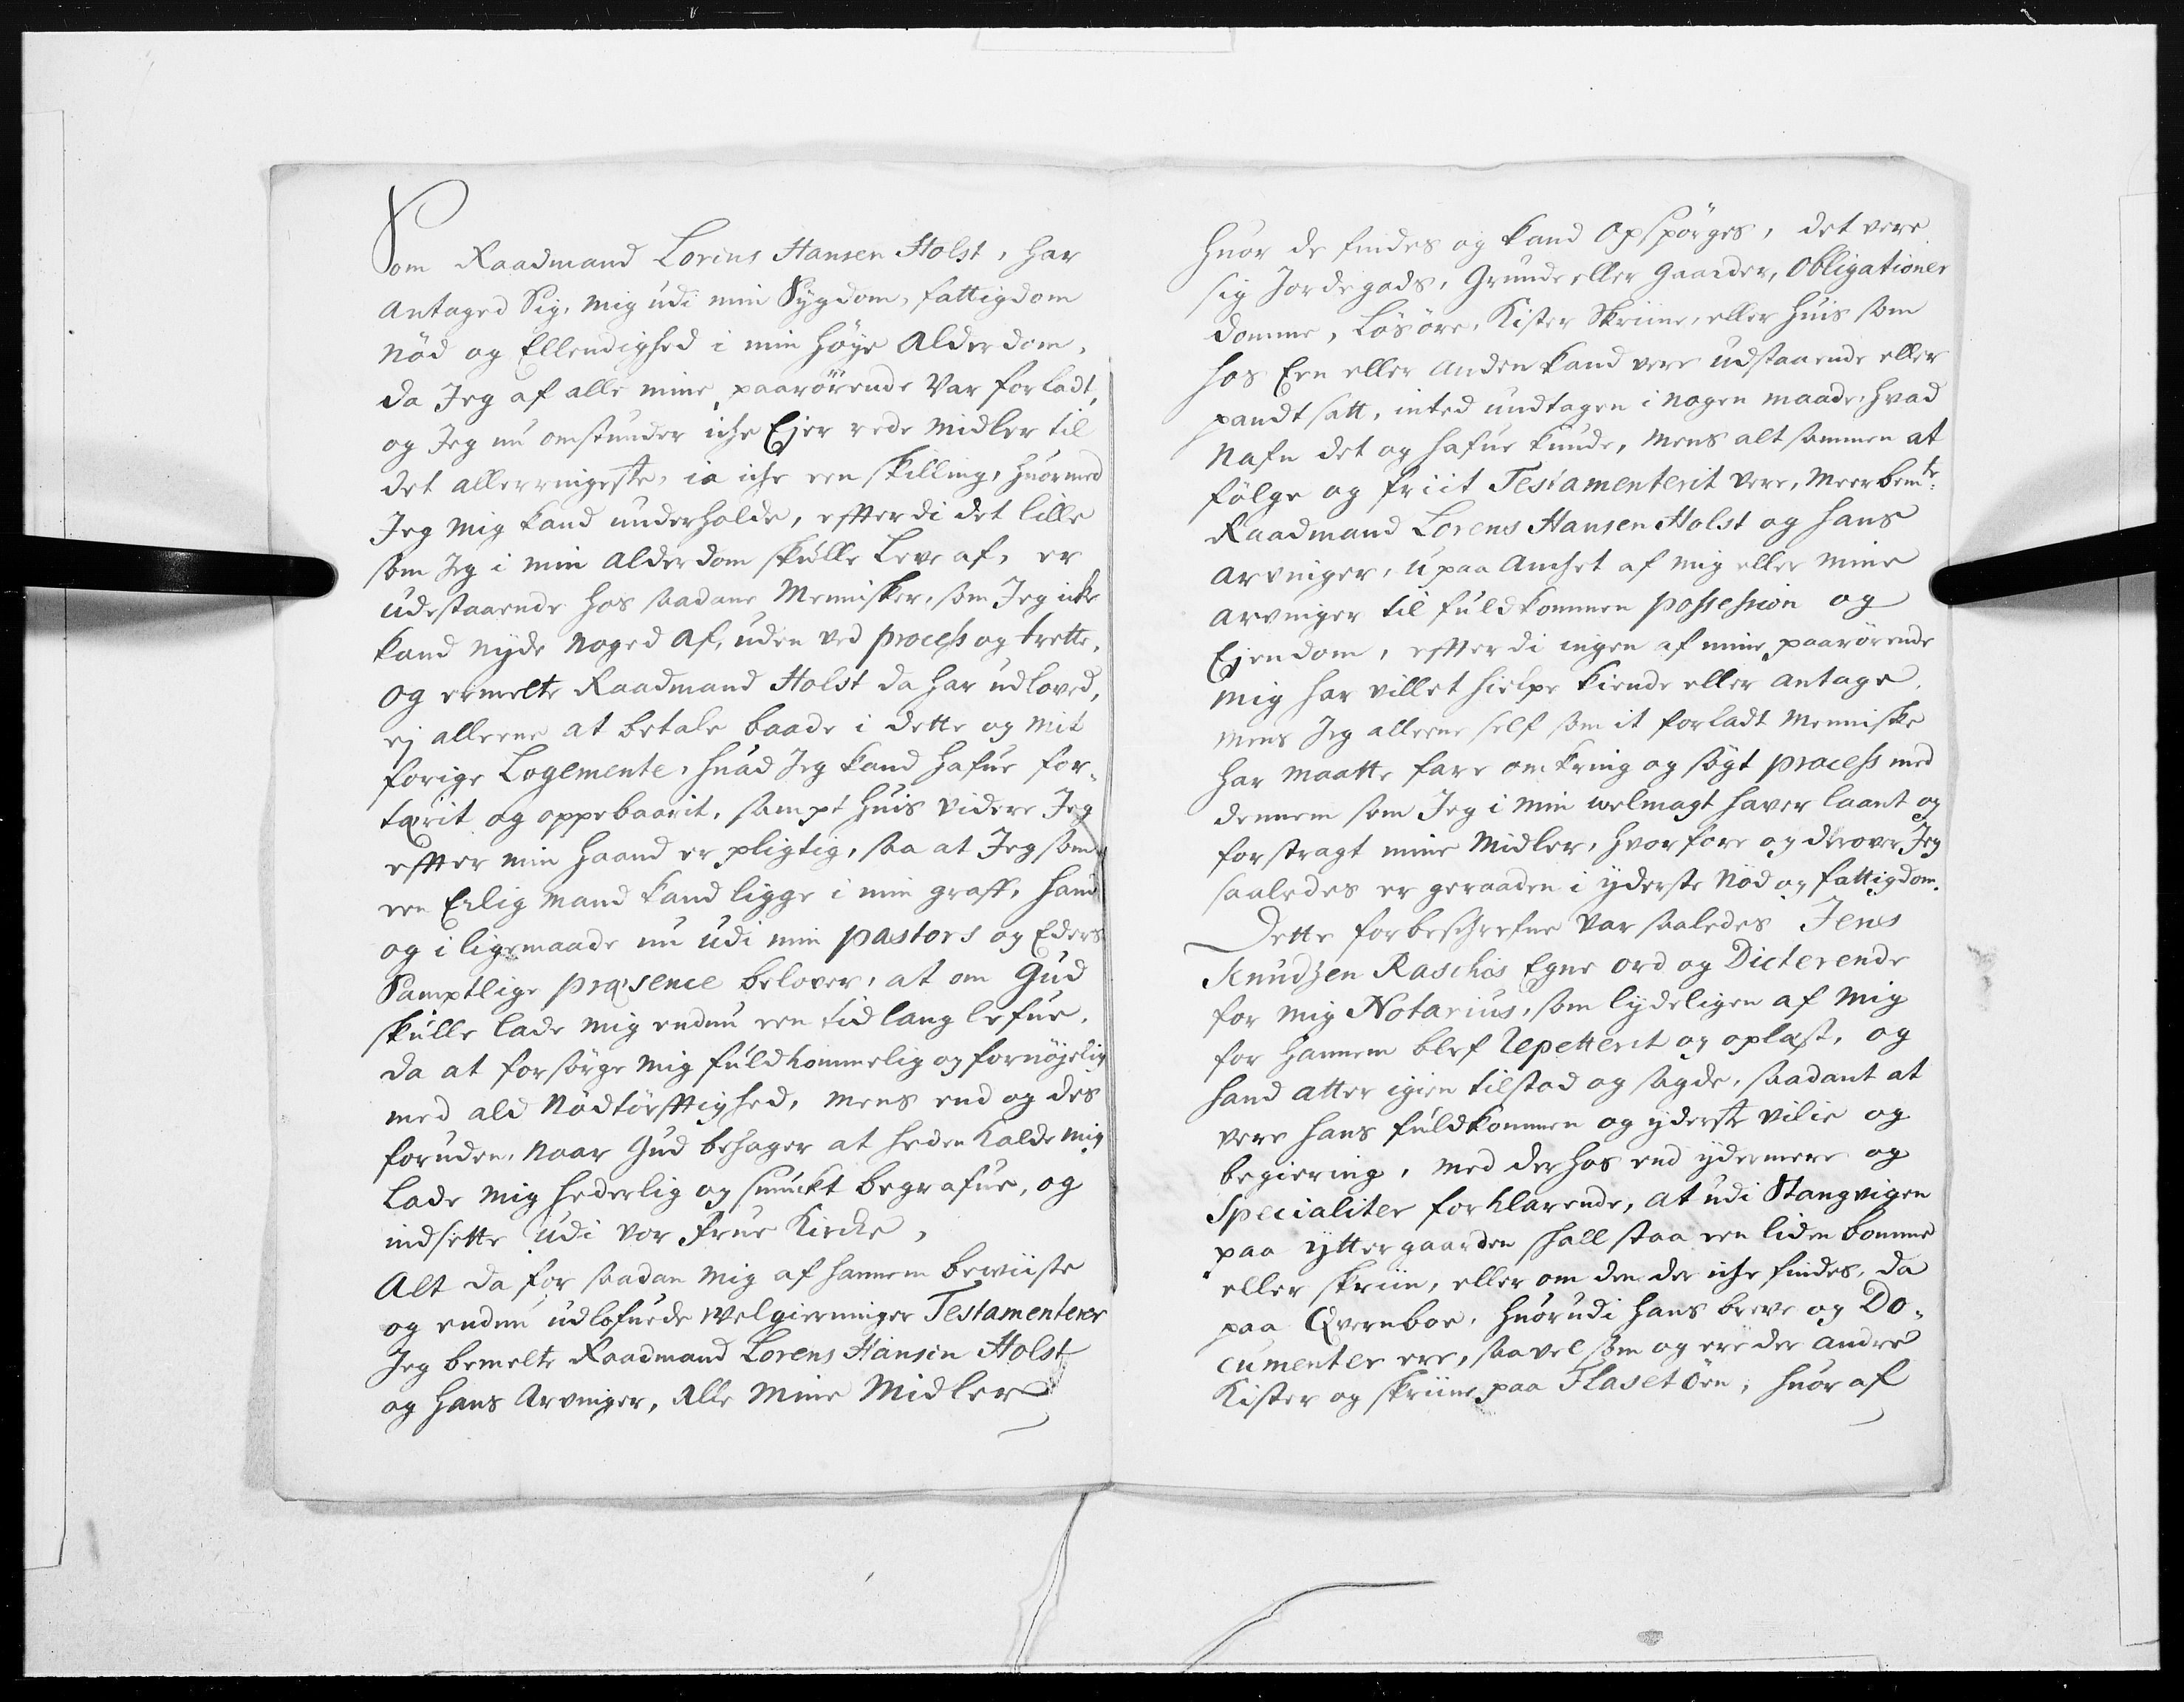 Som Raadmand Lorens Hansen Holst, har
Antaged Sig, mig udi min Sygdom, fattigdom
Nöd og Ellendighed i min Höye Alderdom,
da Jeg af alle mine paarörende Var forladt,
og Jeg nu omstunder iche Ejer rede Midler til
det allerringeste, ia iche een skilling, huormed
Jeg mig kand underholde, effterdi det lille
som Jeg i min Alderdom skulle Leve af, er
udestaaende hos saadane Mennisker, som Jeg icke
kand nyde noged af, uden ved process og trette,
og ermelte Raadmand Holst da har udloved,
ej alleene at betale baade i dette og mit
forige Logemente, huad Jeg kand hafue for¬
tærit og oppebaarit, sampt huis videre Jeg
effter min Haand er pligtig, saa at Jeg som
een Erlig Mand kand ligge i min graff, hand
og i ligemaade nu udi min pastors og Eders
Samptlige præsence belover, at om Gud
skulle lade mig endnu een tid lang lefue,
da at forsörge mig fuldkommelig og fornöjelig
med ald Nödtörfftighed, mens end og des
foruden, naar Gud behager at heden kalde mig
lade mig hederlig og smuckt begrafue, og
indsette udi vor frue Kircke,
Alt da for saadan mig af hannem beviiste
og endnu udlofuede Welgierninger Testamenterer
Jeg bemelte Raadmand Lorens Hansen Holst
og hans Arvinger, Alle Mine Midler
huor de findes og kand opspörges, det vere
sig Jordegods, Grunde eller Gaarder, Obligationer
domme, Lösöre, Kister Skriine, eller huis som
hos Een eller anden kand vere udstaaende eller
pandtsatt, inted undtagen i nogen maade, hvad
Nafn det og hafue kunde, mens alt sammen at
fölge og friit Testamenterit vere, Meerbemte:
Raadmand Lorens Hansen Holst og hans
Arvinger, u paa Anchet af mig eller mine
Arvinger til fuldkommen possession og
Ejendom, effterdi ingen af mine paarörende
mig har villet hielpe kiende eller antage,
mens Jeg alleene self som it forladt Menniske
har maatte fare omkring og sögt process med
dennem som Jeg i min welmagt haver laant og
forstragt mine Midler, hvorfore og derover Jeg
saaledes er geraaden i yderste Nöd og fattigdom.
Dette forbeschrefne var saaledes Jens
Knudzen Raschis Egne ord og Dicterende
for mig Notarius, som lydeligen af mig
for hannem blef Repetterit og oplæst, og
hand atter igien tilstod og sagde, saadant at
vere hans fuldkommen og yderste vilie og
begiering, med derhos end ydermere og
Specialiter forklarende, at udi Stangvigen
paa yttergaarden skall staa een liden bomme
eller skriin, eller om den der iche findes, da
paa Qvernboe, huorudi hans breve og Do¬
cumenter ere, saavel som og ere der andre
Kister og skriine paa Flasetöen, huoraf